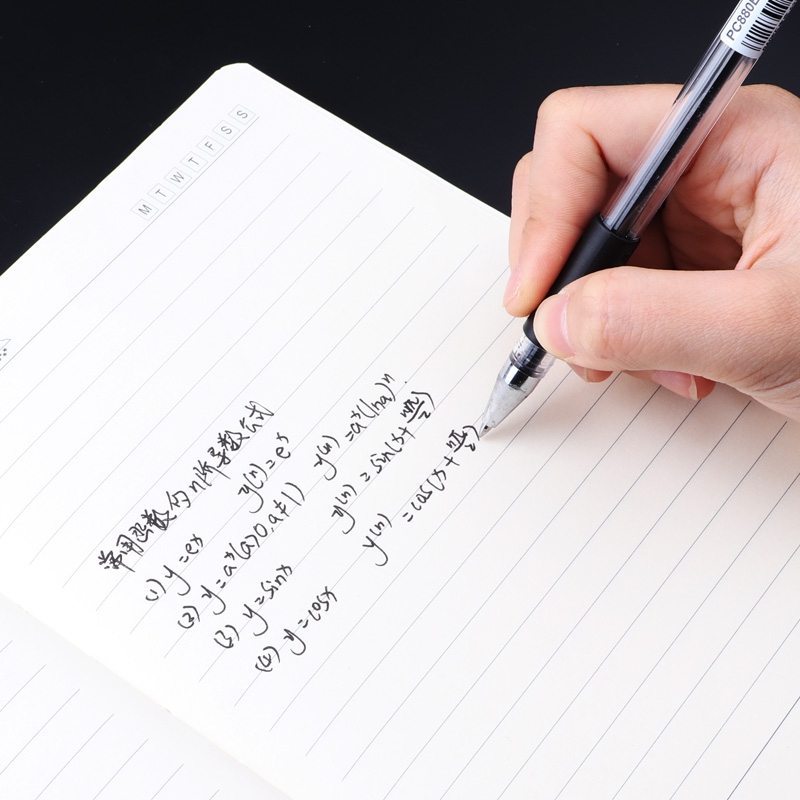 M T W T F S S
常用函数的n阶导数公式
(1) y=eˣ y⁽ⁿ⁾=eˣ
(2) y=aˣ(a>0,a≠1) y⁽ⁿ⁾=aˣ(lna)ⁿ
(3) y=sinx y⁽ⁿ⁾=sin(x+nπ/2)
(4) y=cosx y⁽ⁿ⁾=cos(x+nπ/2)